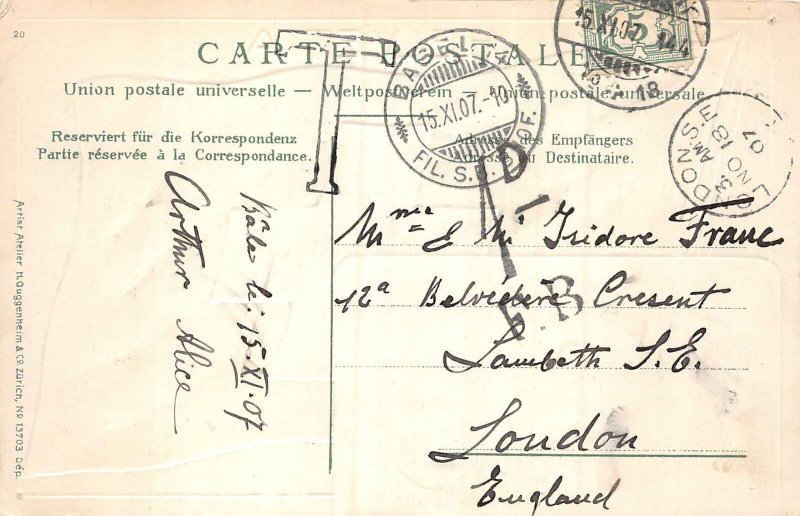 20
CARTE POSTALE
Union postale universelle — Weltpostverein — Unione postale universale
Reserviert für die Korrespondenz
Partie réservée à la Correspondance.
des Empfängers
du Destinataire.
T
BASEL 4
15.XI.07.-10
FIL. S.B.B.
15.XI.07
5
LONDON S.E
3 AM
NO 18
07
Mme & Mr Isidore Franc
12a Belvédère Cresent
Lambeth S.E.
London
England
Bâle le 15 XI 07
Arthur Alice
Artist. Atelier H. Guggenheim & Co. Zürich, No 13703 Dép.